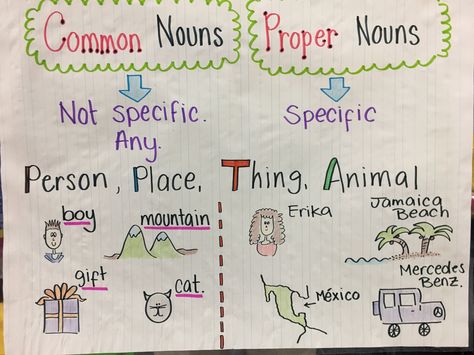 Common Nouns
Proper Nouns
Not specific.
Any.
Specific
Person, Place, Thing, Animal
boy
mountain
Erika
Jamaica
Beach
gift
cat.
México
Mercedes
Benz.